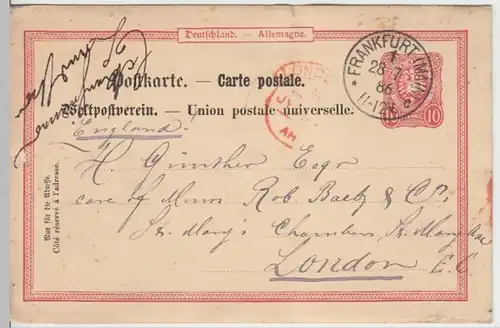 Deutschland. – Allemagne.
Postkarte. — Carte postale.
Weltpostverein. — Union postale universelle.
FRANKFURT (MAIN)
1
28 7
86
11-12 V.
10
LONDON
JY
AM
England
H. Günther Esqr
care of Messrs Rob. Baelz & Co.
St. Mary's Chambers, St. Mary Axe
London E.C.
Nur für die Adresse.
Côté réservé à l'adresse.